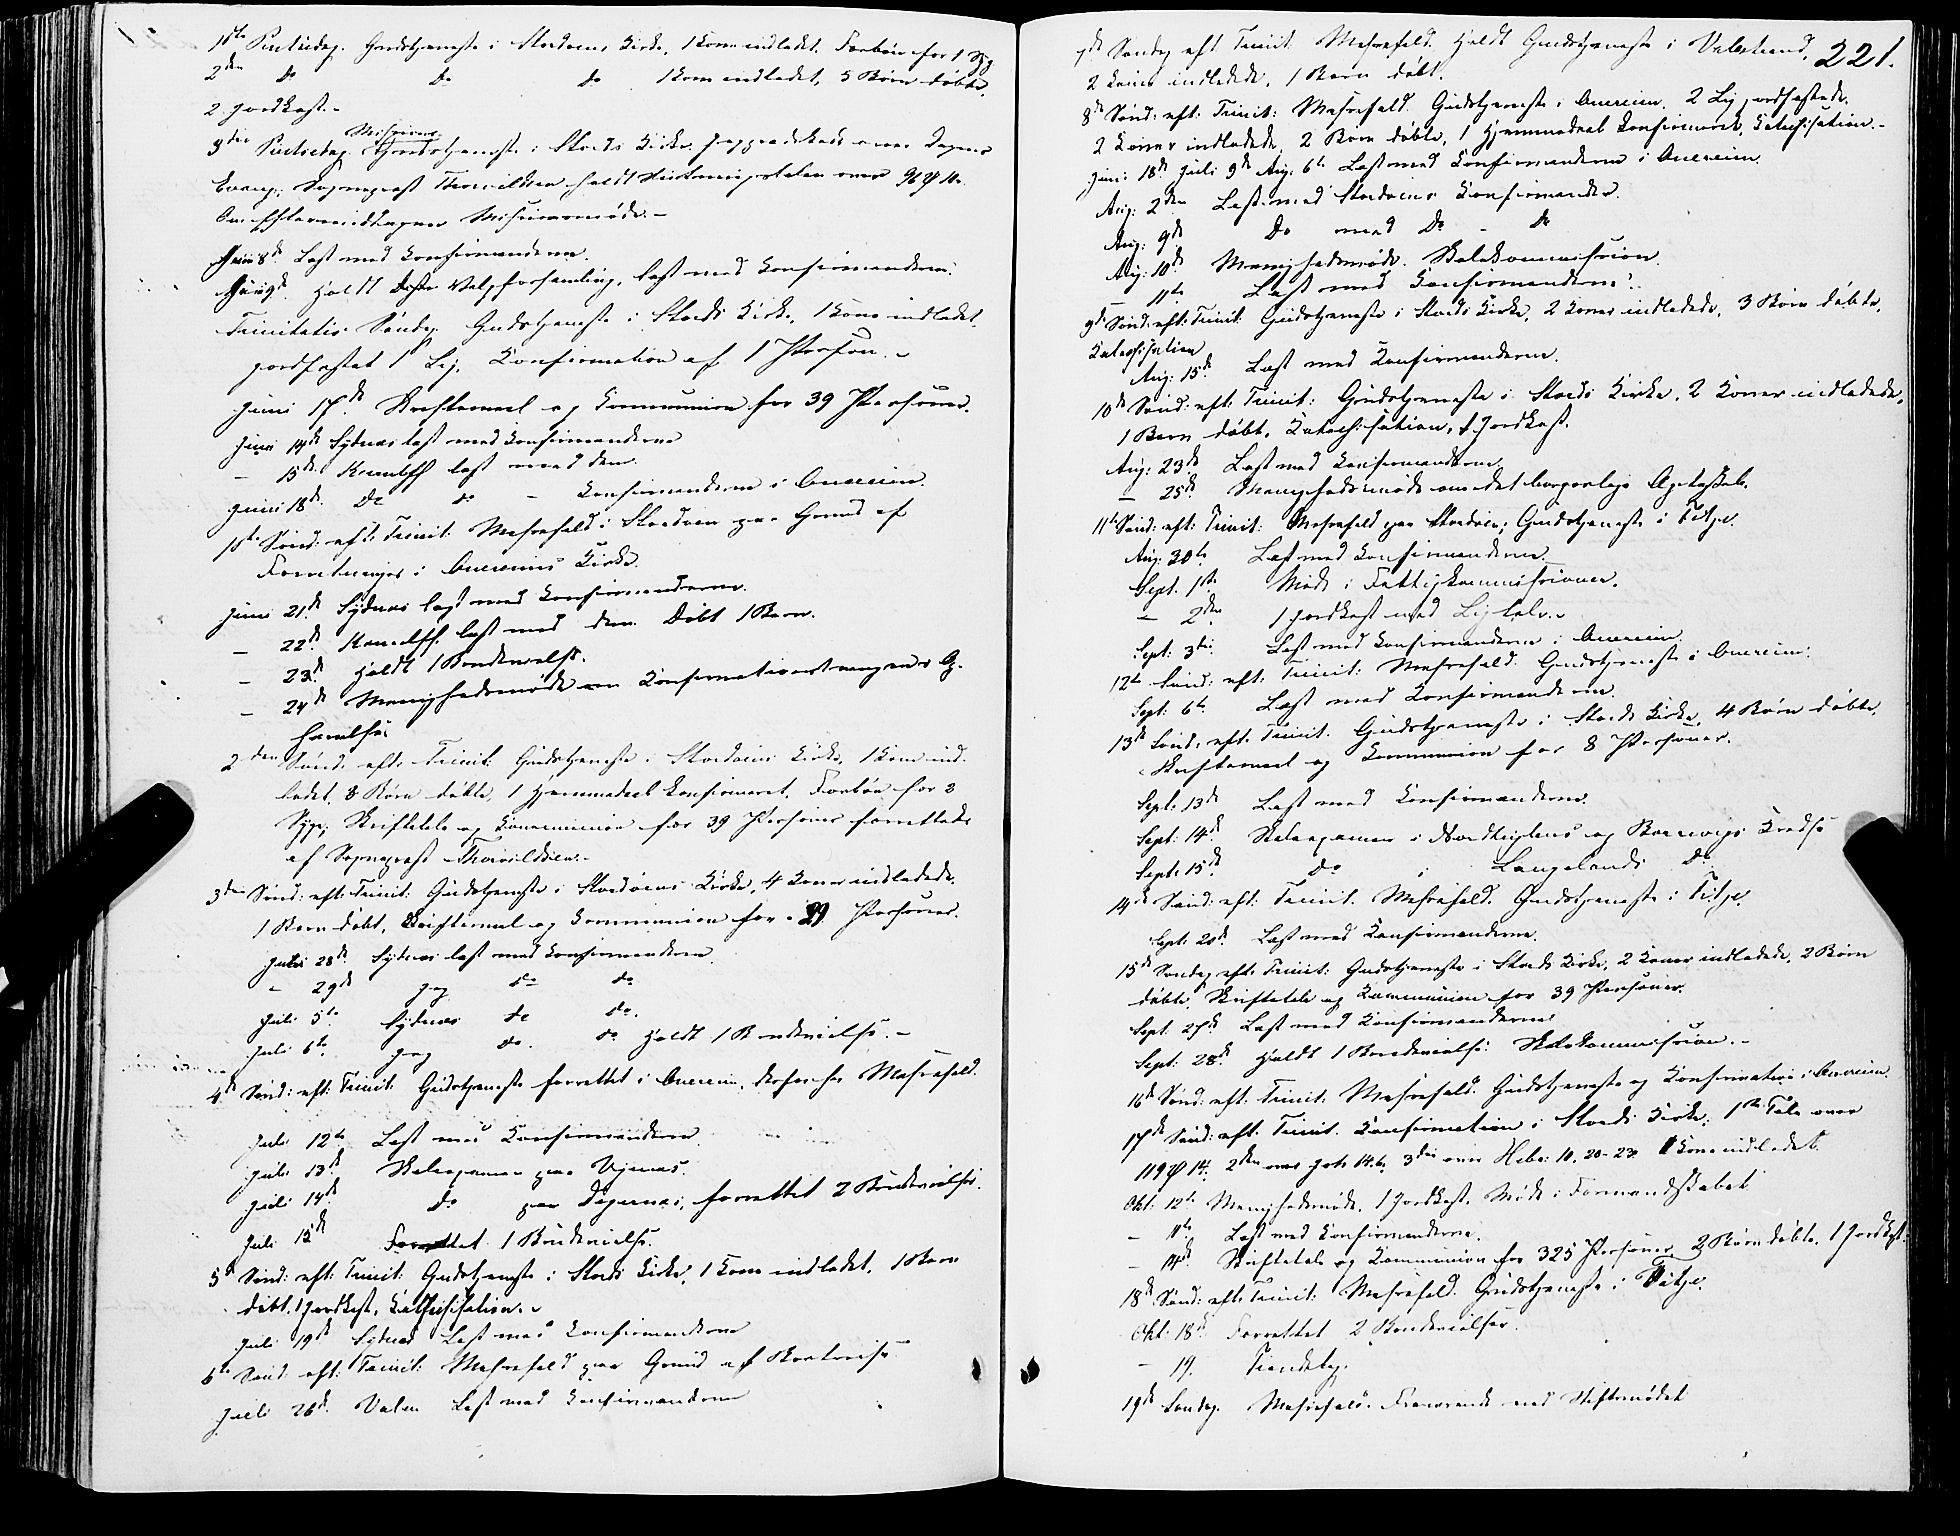 1ste Pintsedag. Gudstjeneste i Stordøens Kirke, 1 Kone indledet. Forbøn for 1 Syg
2den Do Do Do 1 Kone indledet, 5 Børn døbte,
2 Jordkast.-
Missions
3die Pintsedag Gudstjeneste i Stords Kirke. Jeg prædikede over Dagens
Evang., Sogneprest Thorvildsen holdt Missionstalen over 96 ψ 10.
Om Eftermiddagen Missionsmøde.-
Juni 8de Læst med Confirmanderne.
Juni 9de. Holdt Valgforsamling, læst med Confirmanderne.
Trinitatis Søndag. Gudstjeneste i Stords Kirke, 1 Kone indledet,
jordfæstet 1 Lig, Confirmation af 1 Person.-
Juni 17de. Skriftemaal og Communion for 39 Personer.
Juni 14de Sydnes læst med Confirmanderne
- 15de. læst med dem.
Juni 18de. Do do - Confirmanderne i
1ste Sønd: eft: Trinit: Messefald i Stordøen paa Grund af
Forretninger i Kirke.
Juni 21de Sydnes læst med Confirmanderne.
- 22de. læst med dem. Døbt 1 Barn.
- 23de Holdt 1 Brudevielse.
- 24de Menighedsmøde om Confirmations
2den Sønd: eft: Trinit: Gudstjeneste i Stordøens Kirke, 1 Kone ind-
ledet, 8 Børn døbte, 1 Hjemmedøbt Confirmeret. Forbøn for 2
Syge, Skriftetale og Communion for 39 Personer forrettede
af Sogneprest Thorvildsen.-
3die Sønd: eft: Trinit: Gudstjeneste i Stordøens Kirke, 4 Koner indledede,
1 Barn døbt, Skriftemaal og Communion for 29 Personer.
Juni 28de. Sydnes læst med Confirmanderne
- 29de jeg do do
Juli 5te Sydnes do do.
Juli 6te. jeg do. do Holdt 1 Brudevielse.-
4de Sønd: eft: Trinit: Gudstjeneste forrettet i Messefald.
Juli 12te Læst med Confirmanderne
Juli 13de Skoleexamen paa
Juli 14de do paa forrettet 2 Brudevielser.
Juli 15de Forrettet 1 Brudevielse.
5te Sønd: eft: Trinit: Gudstjeneste i Stords Kirke, 1 Kone indledet, 1 Barn
døbt, 1 Jordkast, Katechisation.-
Juli 19de Sydnes Læst med Confirmanderne
6te Sønd: eft: Trinit: Messefald paa Grund af Bortreise
Juli 26de. Valen Læst med Confirmanderne
221.
7de Søndag eft: Trinit: Messefald. Holdt Gudstjeneste i Valestrand,
2 Koner indledede, 1 Barn døbt.
8de Sønd: eft: Trinit: Messefald. Gudstjeneste i 2 Lig jordfæstede,
2 Koner indledede, 2 Børn døbte, 1 Hjemmedøbt Confirmeret, Katechisation.-
Juni 18de Juli 9de Aug. 6te Læst med Confirmanderne i
Aug. 2den Læst med Stordøens Confirmander.
Aug. 9de Do med Do - Do
Aug: 10de Menighedsmøde. Skolekommission.
- 11te Læst med Confirmanderne.
9de Sønd: eft: Trinit: Gudstjeneste i Stords Kirke, 2 Koner indledede, 3 Børn døbte,
Katechisation
Aug: 15de. Læst med Confirmanderne.
10de Sønd: eft: Trinit: Gudstjeneste i Stords Kirke, 2 Koner indledede,
1 Barn døbt, Katechisation, 1 Jordkast.
Aug: 23de Læst med Confirmanderne
- 25de. Menighedsmøde om det borgerlige Ægteskab.
11te Sønd: eft: Trinit: Messefald paa Stordøen; Gudstjeneste i Fitje.
Aug. 30te Læst med Confirmanderne
Sept. 1ste Møde i Fattigkommissionen.
- 2den 1 Jordkast med Ligtale.-
Sept. 3die. Læst med Confirmanderne i
12te Sønd: eft: Trinit: Messefald. Gudstjeneste i
Sept: 6te Læst med Confirmanderne.
13de Sønd: eft: Trinit. Gudstjeneste i Stords Kirke, 4 Børn døbte,
Skriftemaal og Communion for 8 Personer.
Sept. 13de Læst med Confirmanderne.
Sept. 14de Skoleexamen i og Kredse
Sept. 15de do i Langelands Do.
14de Sønd: eft: Trinit. Messefald. Gudstjeneste i Fitje.
Sept. 20de. Læst med Confirmanderne.
15de Søndag eft: Trinit: Gudstjeneste i Stords Kirke, 2 Koner indledede, 2 Børn
døbte, Skriftetale og Communion for 39 Personer.
Sept. 27de Læst med Confirmanderne
Sept: 28de Holdt 1 Brudevielse. Skolekommission.-
16de Sønd: eft: Trinit: Messefald. Gudstjeneste og Confirmation i
17de Sønd: eft: Trinit. Confirmation i Stords Kirke; 1ste Tale over
119 ψ 14. 2den over Joh. 14.6, 3die over Hebr: 10, 20-23. 1 Kone indledet.
Okt: 12te Menighedsmøde, 1 Jordkast. Møde i Formandskabet
- 11te Læst med Confirmanderne.
- 14de Skriftetale og Communion for 325 Personer, 2 Børn døbte, 1 Jordkast.
18de Sønd: eft: Trinit: Messefald. Gudstjeneste i Fitje.
Okt: 18de Forrettet 2 Brudevielser.
- 19. Tiendetag.
19de Søndag. Messefald. Fraværende ved Stiftsmødet